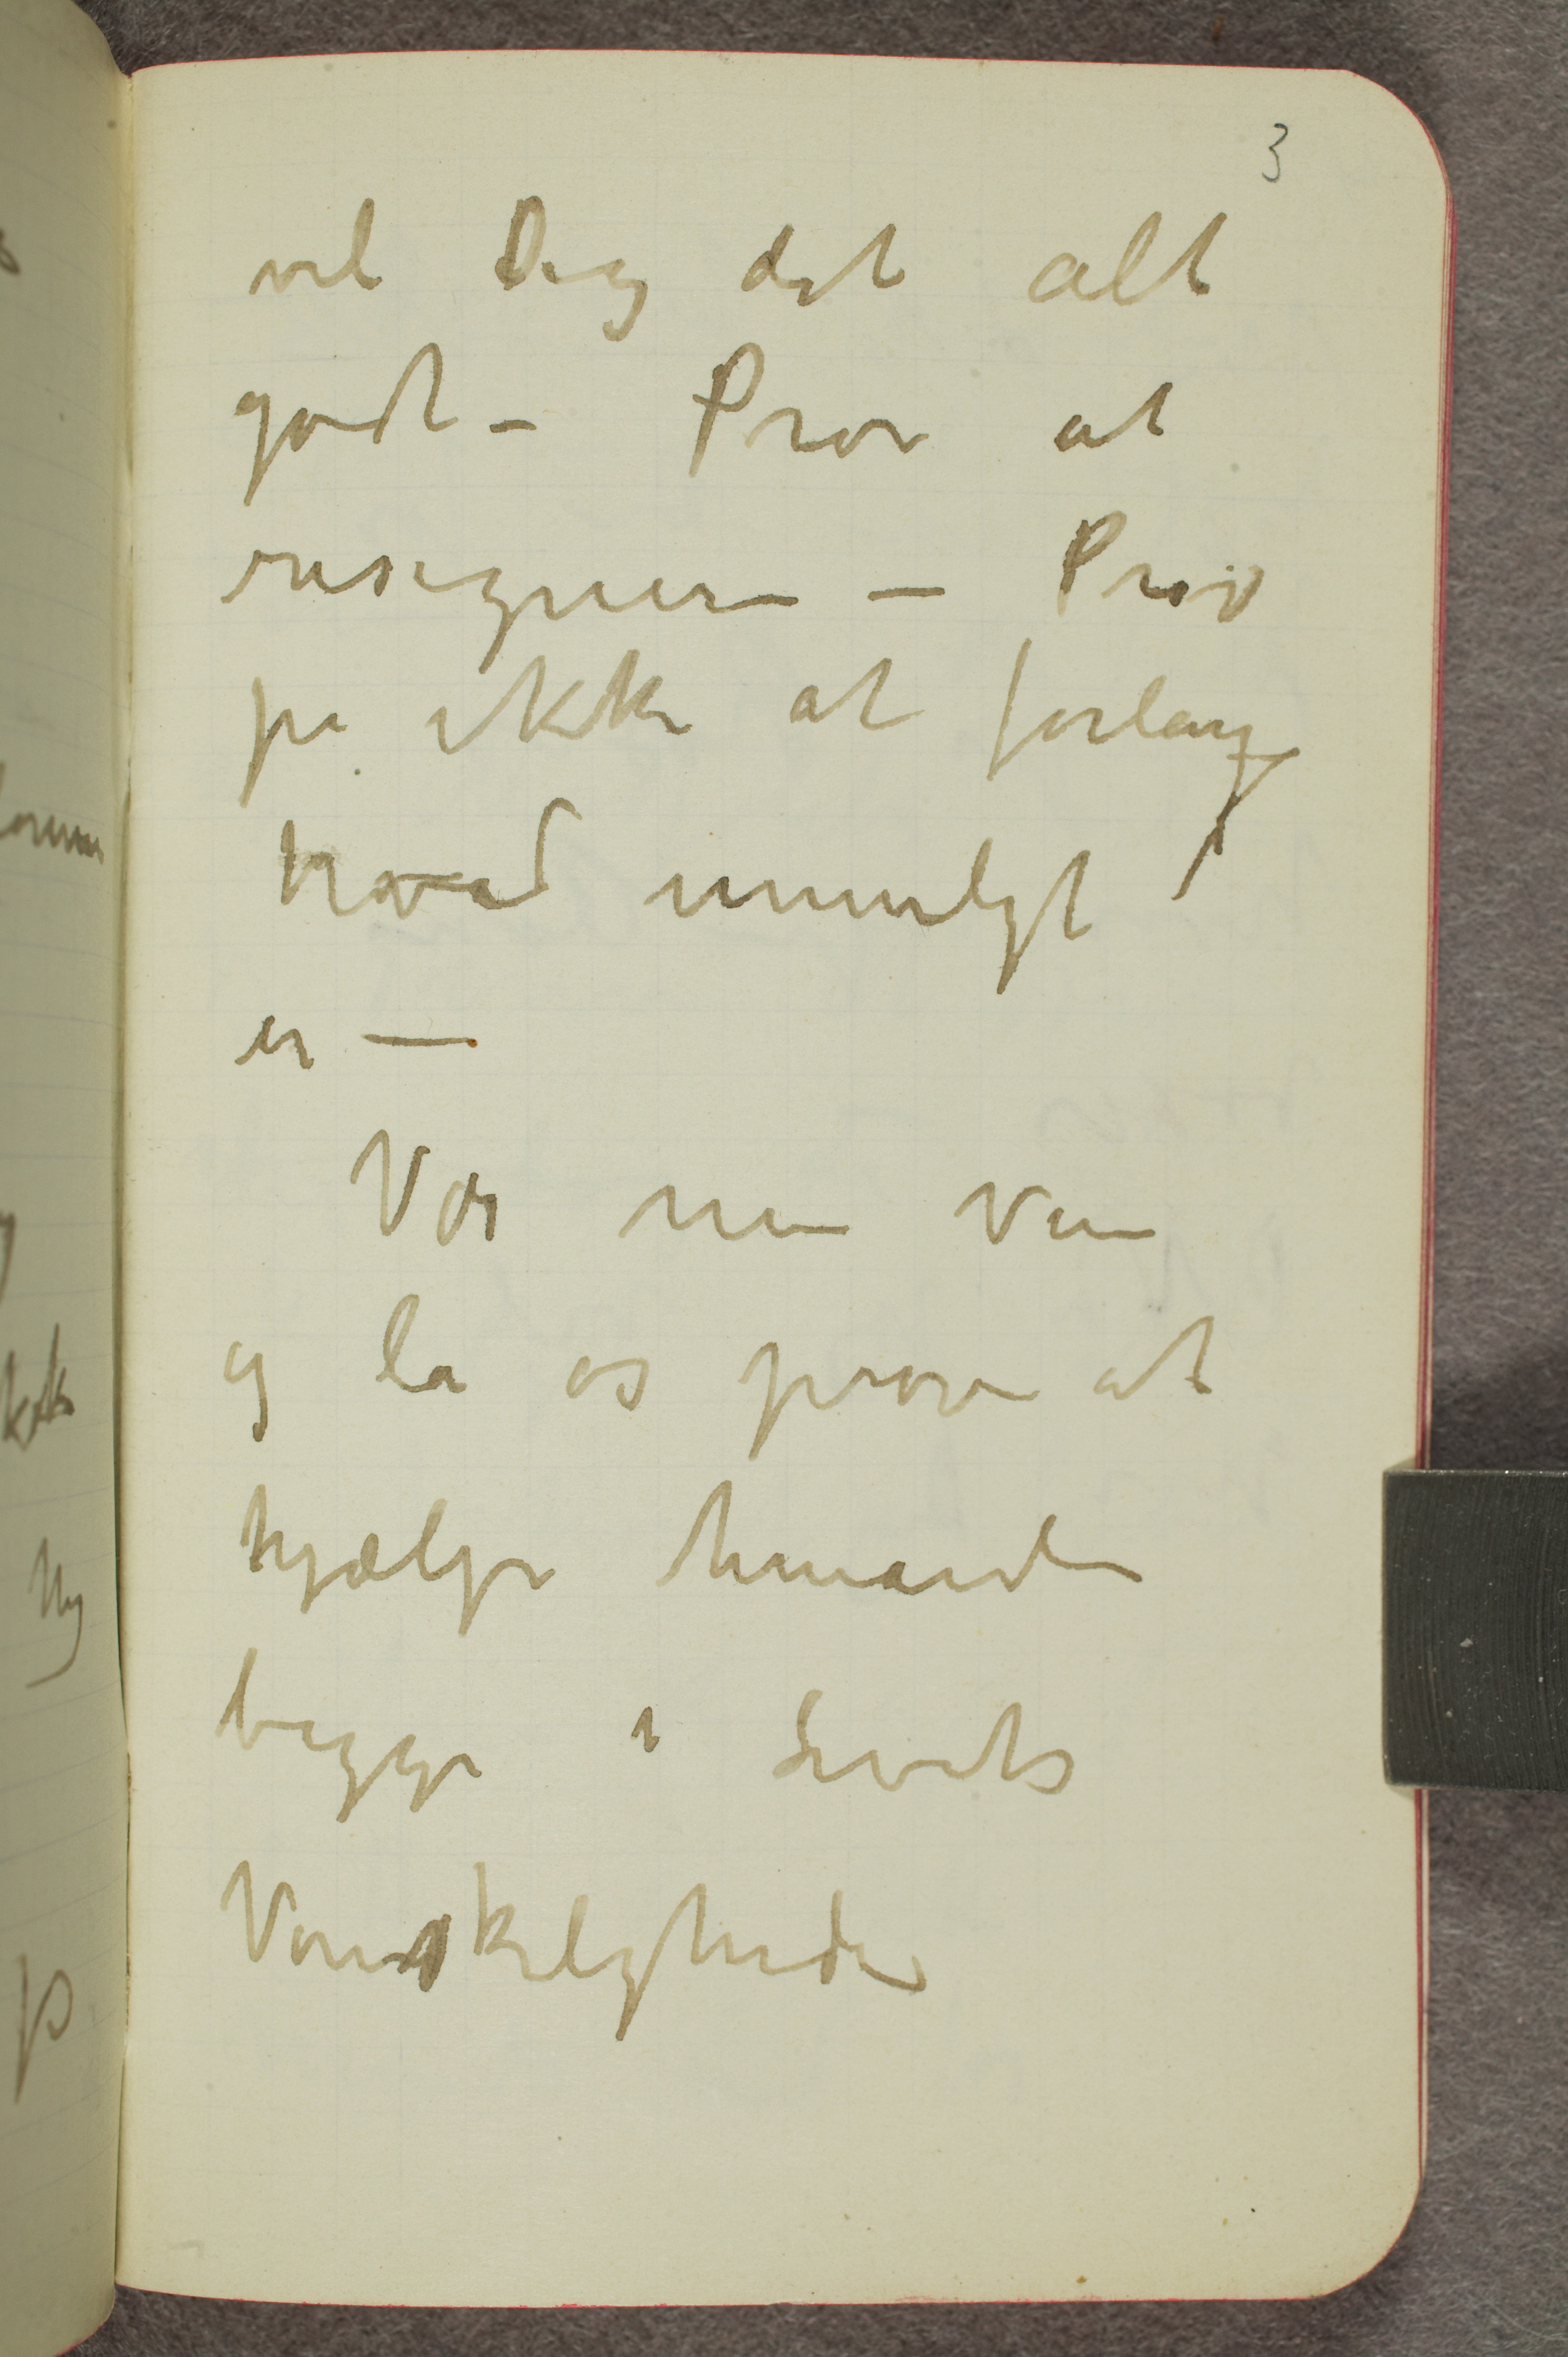 3
vil Dig det alt
godt – Prøv at
resignere – Prøv
på ikke at forlange
hvad umuligt
er –
Vær min ven
og la os prøve at
hjælpe hinanden
begge i Livets
Vanskeligheder